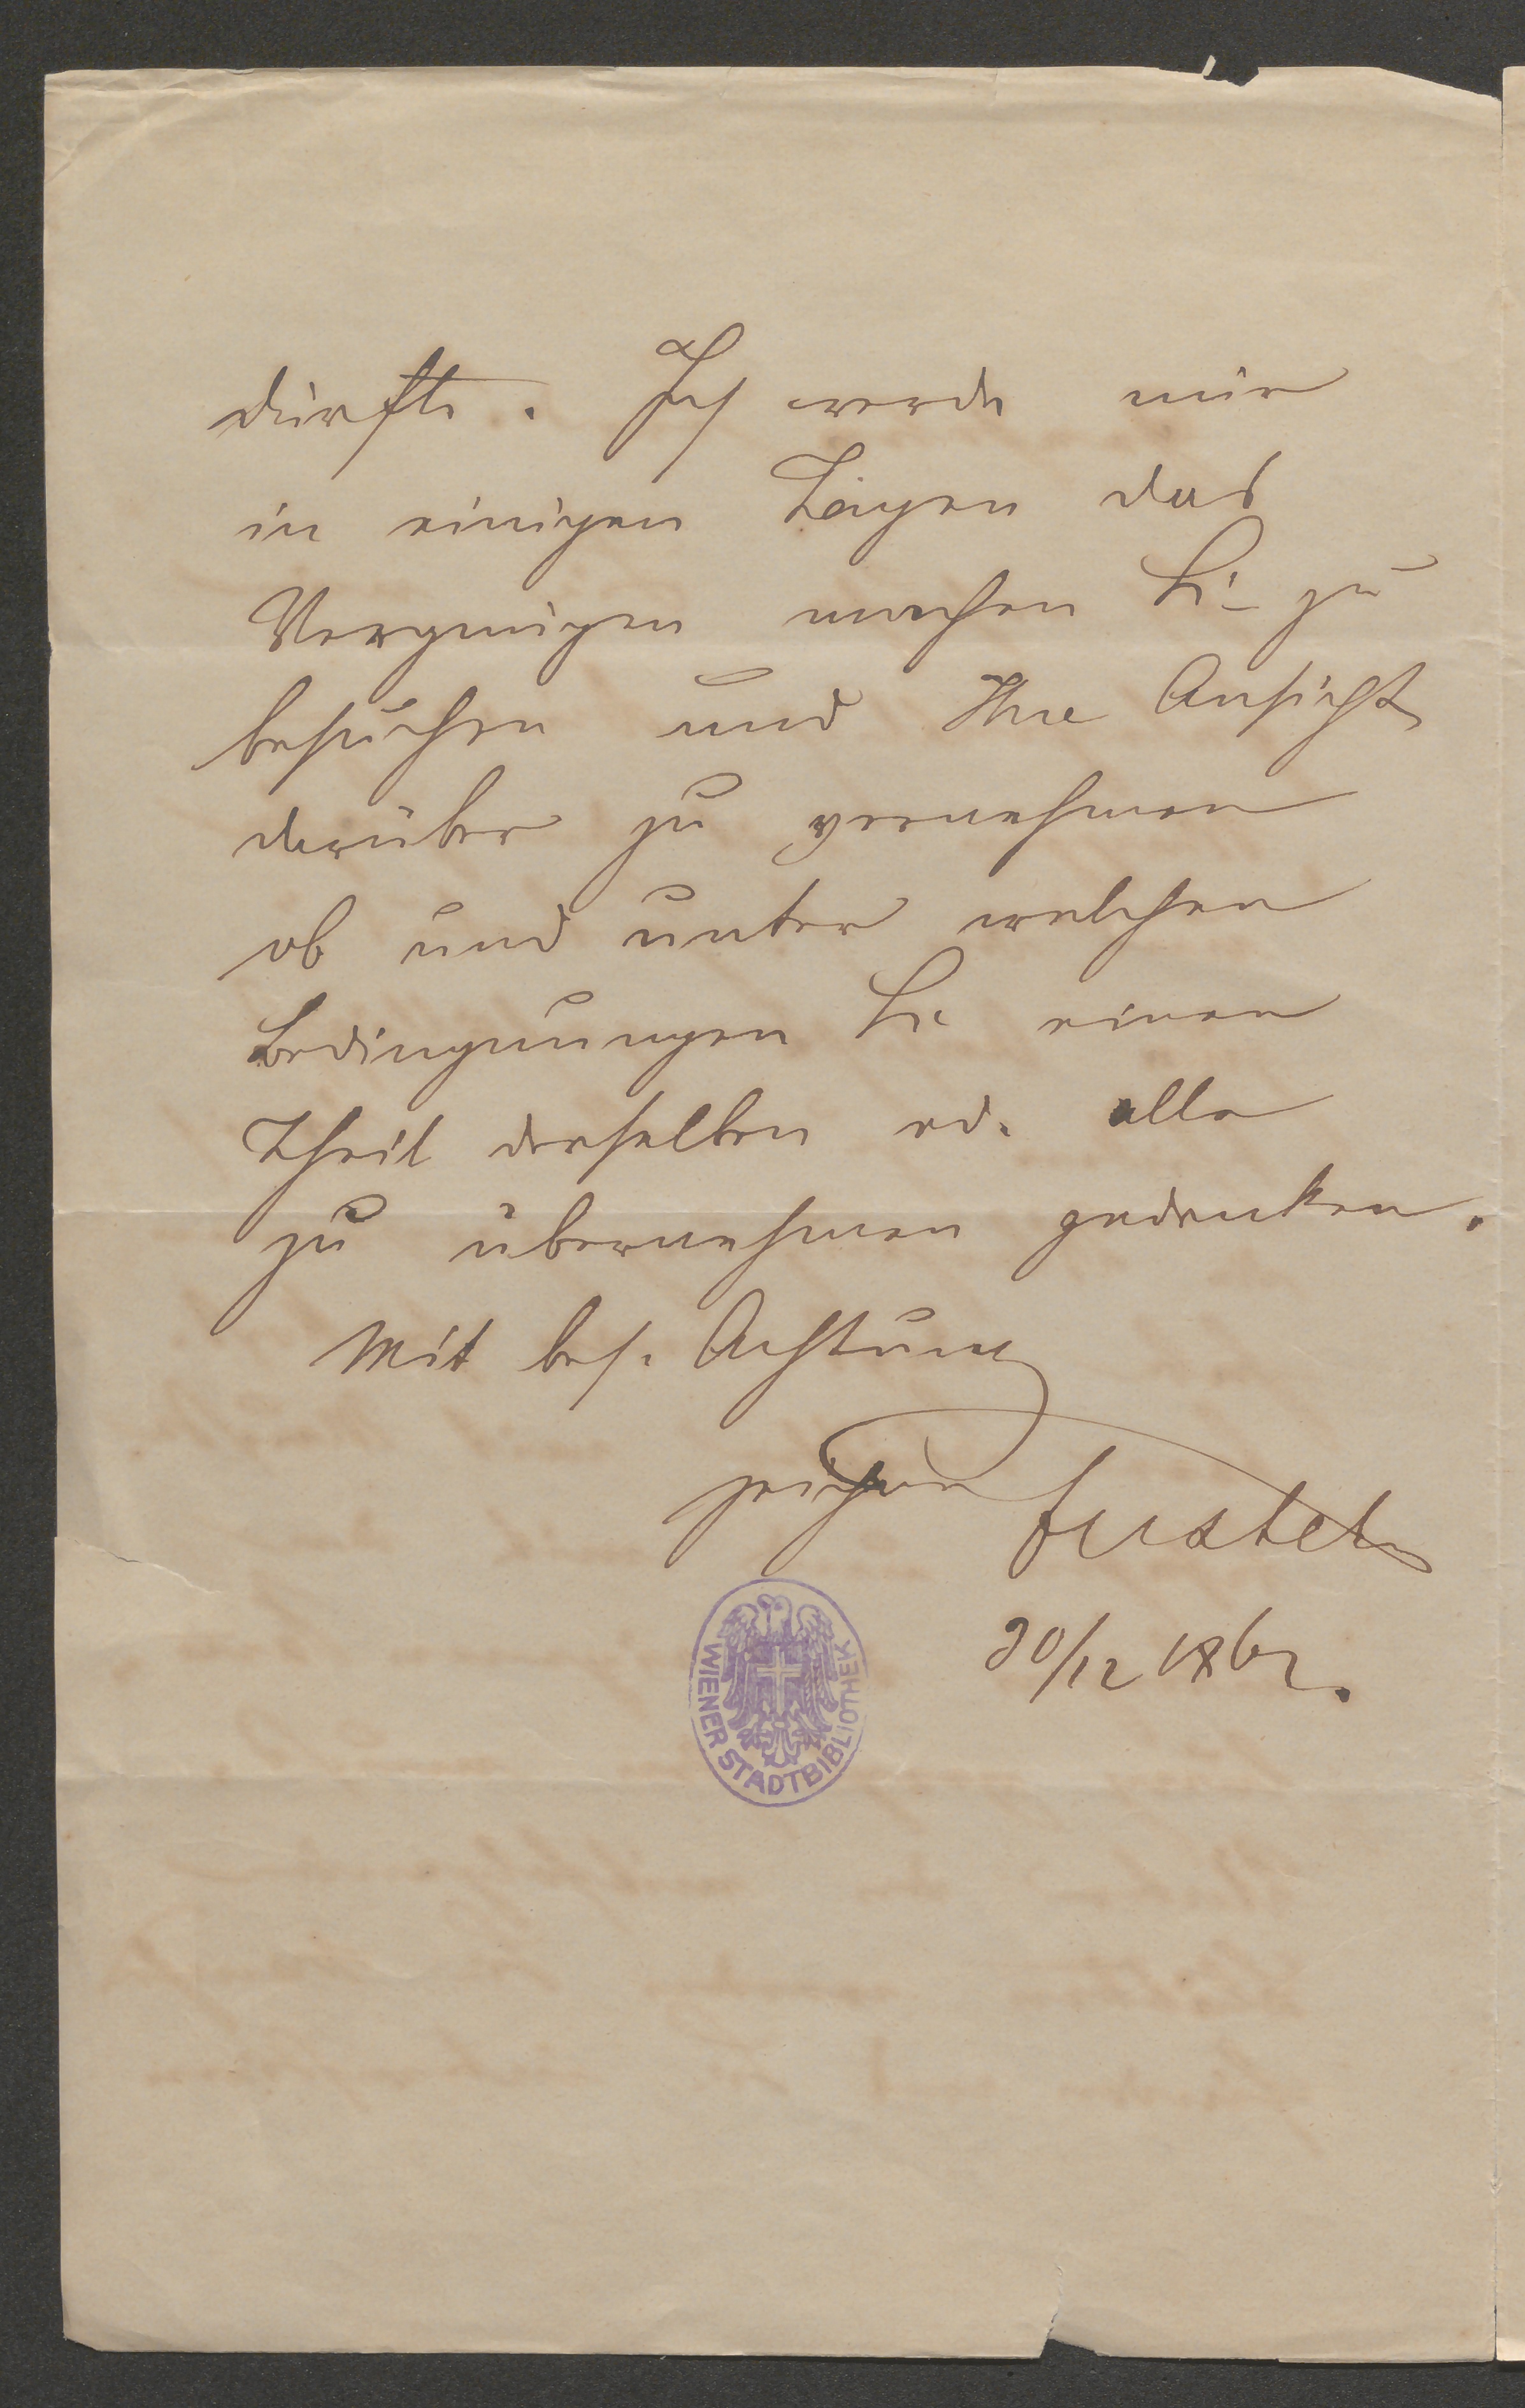 dürfte. Ich werde mir
in einigen Tagen das
Vergnügen machen Sie zu
besuchen und Ihre Ansicht
darüber zu vernehmen
ob und unter welchen
Bedingnungen Sie einen
Theil derselben od. alle
zu übernehmen gedenken.
Mit bes. Achtung
zeichne Ferstel
30/12 1862.
WIENER STADTBIBLIOTHEK